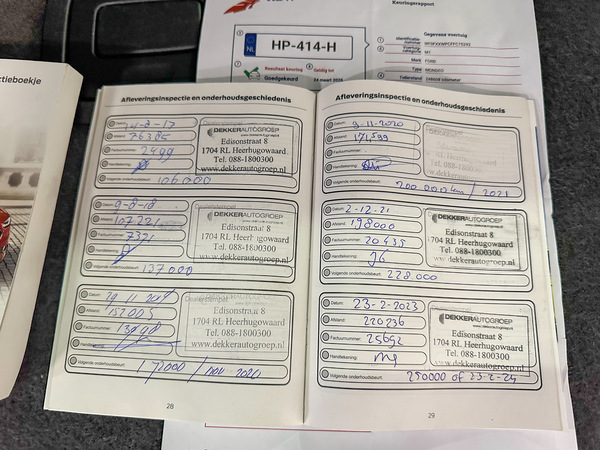 ctieboekje
Keuringsrapport
NL
HP-414-H
Resultaat keuring
Goedgekeurd
Geldig tot
24 maart 2025
Gegevens voertuig
Identificatie-
nummer
Voertuig-
categorie
M1
Merk
FORD
Type
MONDEO
Tellerstand
Afleveringsinspectie en onderhoudsgeschiedenis
Datum:
4-8-17
Afstand:
76385
Factuurnummer:
2499
Handtekening:
Volgende onderhoudsbeurt:
106000
DEKKERAUTOGROEP
Edisonstraat 8
1704 RL Heerhugowaard
Tel. 088-1800300
www.dekkerautogroep.nl
Datum:
9-8-18
Afstand:
107221
Factuurnummer:
7321
Handtekening:
Volgende onderhoudsbeurt:
137000
Dealerstempel
DEKKERAUTOGROEP
Edisonstraat 8
1704 RL Heerhugowaard
Tel. 088-1800300
www.dekkerautogroep.nl
Datum:
Afstand:
142005
Factuurnummer:
13998
Handtekening:
Volgende onderhoudsbeurt:
172000 / nov. 2020
Dealerstempel
DEKKERAUTOGROEP
Edisonstraat 8
1704 RL Heerhugowaard
Tel. 088-1800300
www.dekkerautogroep.nl
28
Afleveringsinspectie en onderhoudsgeschiedenis
Datum:
9-11-2020
Afstand:
171,599
Factuurnummer:
Handtekening:
Volgende onderhoudsbeurt:
200.000 km / 2021
Edisonstraat 8
1704 RL Heerhugowaard
Tel. 088-1800300
www.dekkerautogroep.nl
Datum:
2-12-21
Afstand:
198000
Factuurnummer:
20435
Handtekening:
Volgende onderhoudsbeurt:
228.000
DEKKERAUTOGROEP
Edisonstraat 8
1704 RL Heerhugowaard
Tel. 088-1800300
www.dekkerautogroep.nl
Datum:
23-2-2023
Afstand:
220236
Factuurnummer:
25692
Handtekening:
Volgende onderhoudsbeurt:
250000 of 23-2-24
DEKKERAUTOGROEP
Edisonstraat 8
1704 RL Heerhugowaard
Tel. 088-1800300
www.dekkerautogroep.nl
29